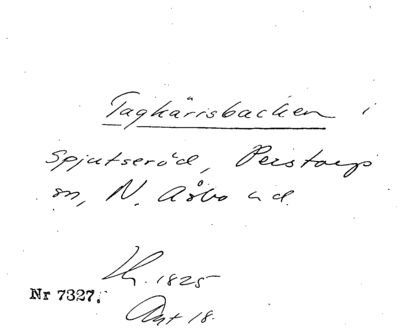 Tagkärisbacken i
Spjutseröd, Perstorps
sn, N. Åsbo hd.
1825
Nr 7327.
Ant 18.